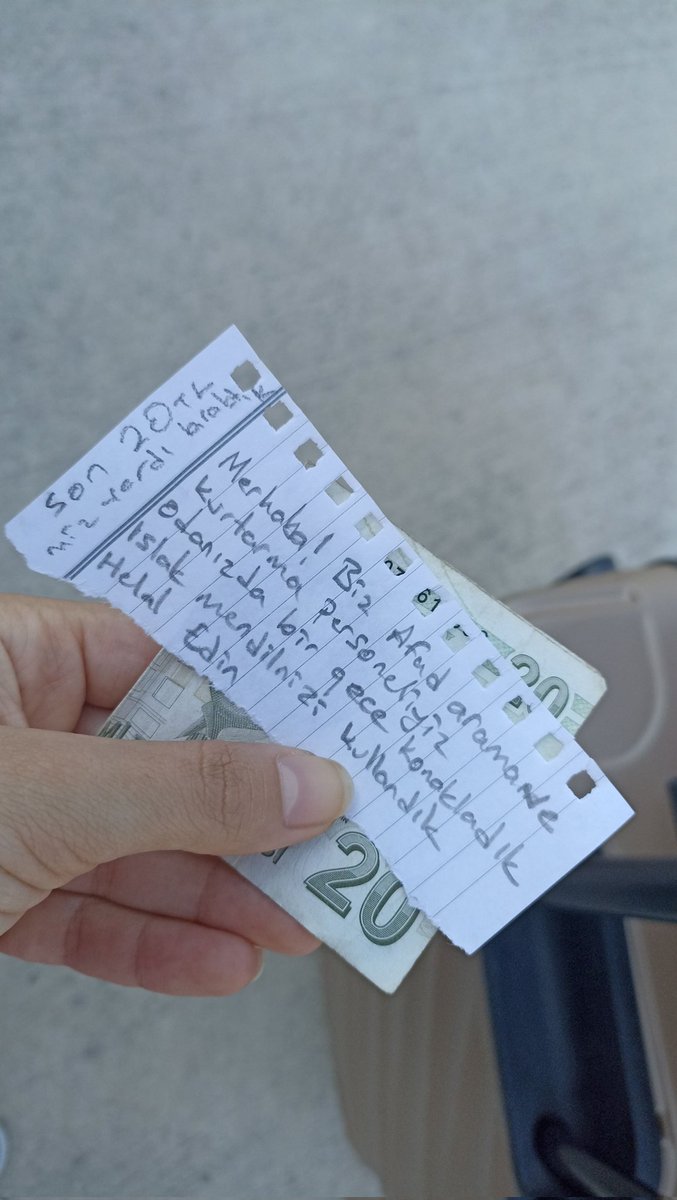 son 20 TL
miz vardı bıraktık
Merhaba! Biz Afad aramave
kurtarma personeliyiz
Odanızda bir gece konakladık
Islak mendilinizi kullandık
Helal Edin
61
20
20